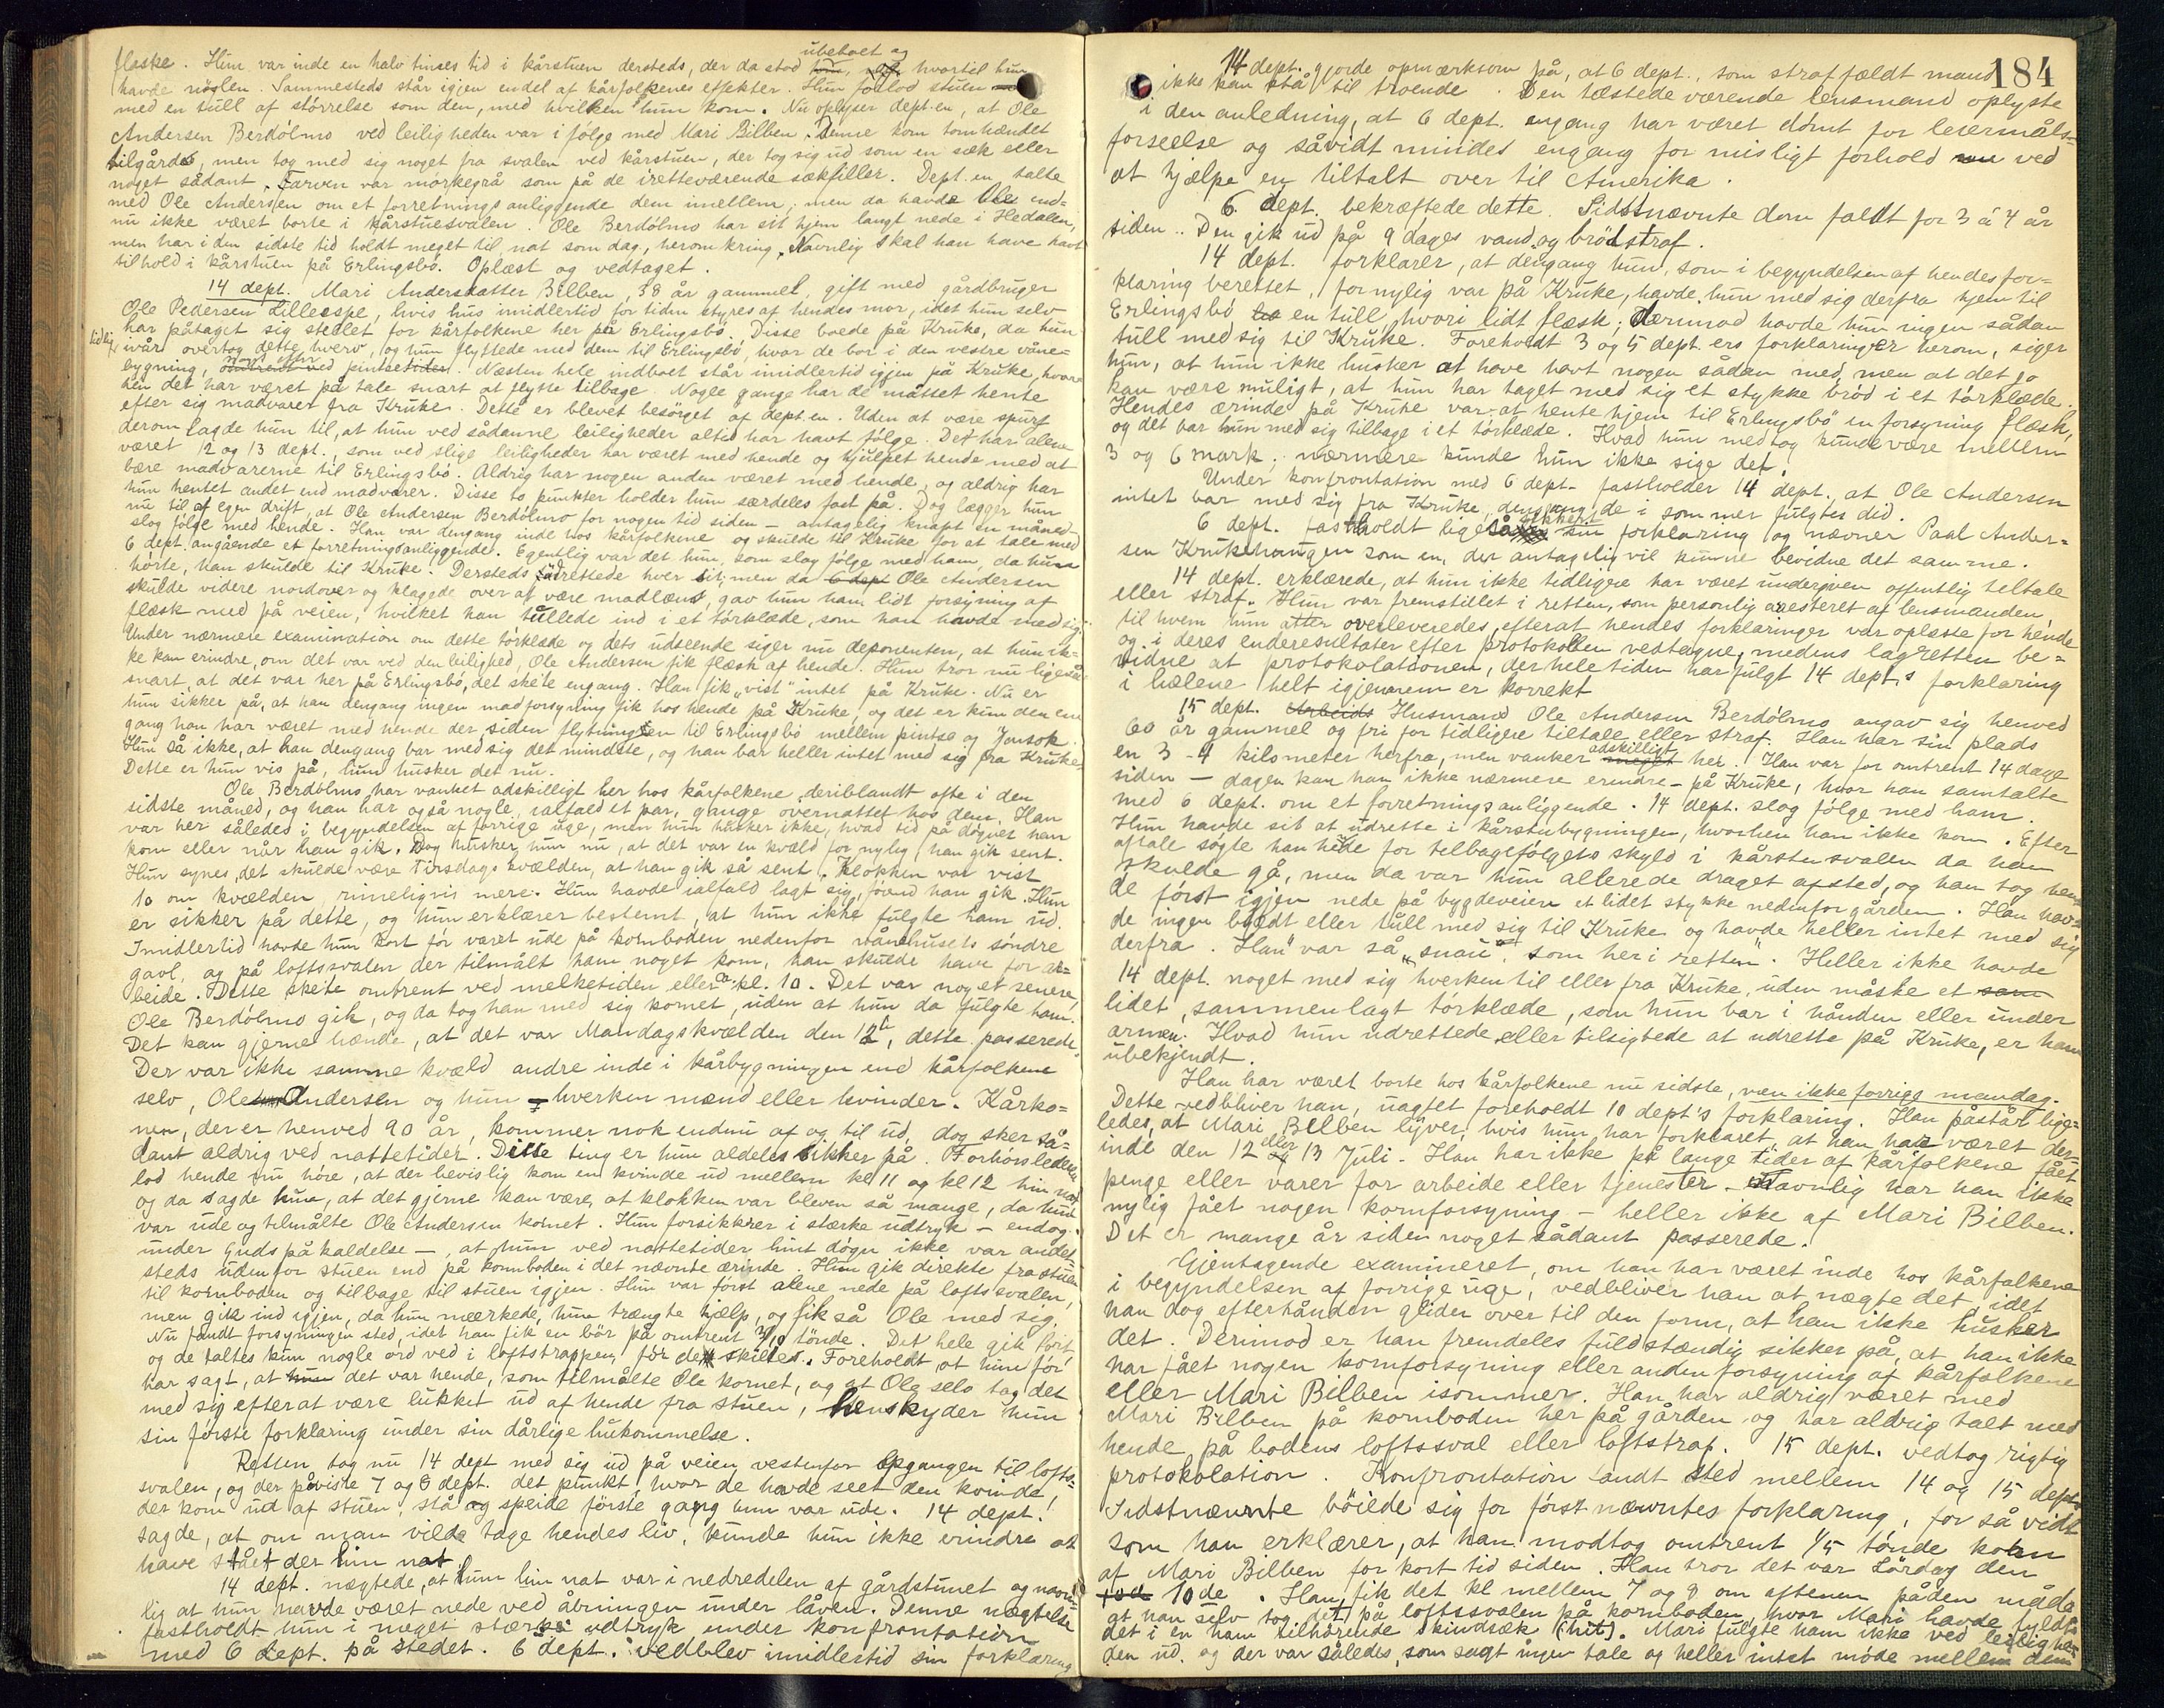 flaske. Hun var inde en halv times tid i kårstuen dersteds, der da stod ubeboet og hvortil hun
havde nöglen. Sammesteds står igjen endel af kårfolkenes effekter. Hun forlod stuen
med en tull af störrelse som den, med hvilken hun kom. Nu oplyser dept.en, at Ole
Andersen Berdölmo ved leiligheden var i fölge med Mari Bilben. Denne kom tomhændet
tilgårds, men tog med sig noget fra svalen ved kårstuen, der tog sig ud som en sæk eller
noget sådant. Farven var mörkegrå som på de iretteværende sækfiller. Dept.en talte
med Ole Andersen om et forretningsanliggende dem imellem; men da havde Ole end-
nu ikke været borte i kårstuesvalen. Ole Berdölmo har sit hjem langt nede i Hedalen,
men har i den sidste tid holdt meget til, nat som dag, herom kring. Navnlig skal han have havt
tilhold i kårstuen på Erlingsbö. Oplæst og vedtaget.
14 dept. Mari Andersdatter Bilben, 38 år gammel, gift med gårdbruger
Ole Pedersen Lilleespe, hvis hus imidlertid for tiden styres af hendes mor, idet hun selv
har påtaget sig stellet for kårfolkene her på Erlingsbö. Disse boede på Kruke, da hun
tidlig ivår overtog dette hverv, og hun flyttede med dem til Erlingsbö, hvor de bor i den vestre våne-
bygning, noget efter pintsetider. Næsten hele indboet står imidlertid igjen på Kruke, hvor-
hen det har været på tale snart at flytte tilbage. Nogle gange har de måttet hente
efter sig madvarer fra Kruke. Dette er blevet besörget af dept.en. Uden at være spurt
derom lagde hun til, at hun ved sådanne leiligheder altid har havt fölge. Det har alene
været 12 og 13 dept., som ved slige leiligheder har været med hende og hjulpet hende med at
bære madvarerne til Erlingsbö. Aldrig har nogen anden været med hende, og aldrig har
hun hentet andet end madvarer. Disse to punkter holder hun særdeles fast på. Dog lægger hun
nu til af egen drift, at Ole Andersen Berdölmo for nogen tid siden – antagelig knapt en måned –
slog fölge med hende. Han var dengang inde hos kårfolkene og skulde til Kruke for at tale med
6 dept. angående et forretningsanliggende. Egentlig var det hun, som slog fölge med ham, da hun
hörte, han skulde til Kruke. Dersteds udrettede hver sit; men da 6 dept Ole Andersen
skulde videre nordover og klagede over at være madlöus, gav hun ham lidt forsyning af
flæsk med på veien, hvilket han tullede ind i et törklæde, som han havde med sig.
Under nærmere examination om dette törklæde og dets udseende siger nu deponenten, at hun ik-
ke kan erindre, om det var ved den leilighed, Ole Andersen fik flæsk af hende. Hun tror nu ligeså
snart, at det var her på Erlingsbö, det skete engang. Han fik „vist" intet på Kruke. Nu er
hun sikker på, at han dengang ingen madforsyning fik hos hende på Kruke, og det er kun den ene
gang han har været med hende der siden flytningen til Erlingsbö mellem pintse og Jonsok.
Hun så ikke, at han dengang bar med sig det mindste, og han bar heller intet med sig fra Kruke.
Dette er hun vis på, hun husker det nu.
Ole Berdölmo har vanket adskilligt her hos kårfolkene, deriblandt ofte i den
sidste måned, og han har også nogle, ialfald et par, gange overnattet hos dem. Han
var her således i begyndelsen af forrige uge, men hun husker ikke, hvad tid på dögnet han
kom eller når han gik. Dog husker hun nu, at det var en kvæld fornylig, han gik sent.
Hun synes, det skulde være Tirsdags kvælden, at han gik så sent. Klokken var vist
10 om kvælden, rimeligvis mere. Hun havde ialfald lagt sig, förend han gik. Hun
er sikker på dette, og hun erklærer bestemt, at hun ikke fulgte ham ud.
Imidlertid havde hun kort för været ude på kornboden nedenfor vånehusets söndre
gavl, og på loftssvalen der tilmålt ham noget korn, han skulde have for ar-
beide. Dette skete omtrent ved melketiden eller ca. kl. 10. Det var noget senere,
Ole Berdölmo gik, og da tog han med sig kornet, uden at hun da fulgte ham.
Det kan gjerne hænde, at det var Mandagskvælden den 12te, dette passerede.
Der var ikke samme kvæld andre inde i kårbygningen end kårfolkene
selv, Ole Andersen og hun – hverken mænd eller kvinder. Kårko-
nen, der er henved 90 år, kommer nok endnu af og til ud, dog sker så-
dant aldrig ved nattetider. Disse ting er hun aldeles sikker på. Forhörslederen
lod hende nu höre, at der bevislig kom en kvinde ud mellem kl 11 og kl 12 hin nat
og da sagde hun, at det gjerne kan være, at klokken var bleven så mange, da hun
var ude og tilmålte Ole Andersen kornet. Hun forsikkrer i stærke udtryk – endog
under Guds påkaldelse –, at hun ved nattetider hint dögn ikke var andet
steds udenfor stuen end på kornboden i det nævnte ærinde. Hun gik direkte fra stuen
til kornboden og tilbage til stuen igjen. Hun var först alene nede på loftssvalen,
men gik ind igjen, da hun mærkede, hun trængte hjælp, og fik så Ole med sig.
Nu fandt forsyningen sted, idet han fik en bör på omtrent 3/10 tönde. Det hele gik fort,
og de taltes kun nogle ord ved i loftstrappen, för de skiltes. Foreholdt, at hun för
har sagt, at hun det var hende, som tilmålte Ole kornet, og at Ole selv tog det
med sig efter at være lukket ud af hende fra stuen, henskyder hun
sin förste forklaring under sin dårlige hukommelse.
Retten tog nu 14 dept med sig ud på veien vestenfor opgangen til lofts-
svalen, og der påviste 7 og 8 dept. det punkt, hvor de havde seet den kvinde,
der kom ud af stuen, stå og speide förste gang hun var ude. 14 dept.
sagde, at om man vilde tage hendes liv, kunde hun ikke erindre at
have stået der hin nat.
14 dept. nægtede, at hun hin nat var i nedredelen af gårdstunet og navn-
lig at hun havde været nede ved åbningen under låven. Denne nægtelse
fastholdt hun i meget stærke udtryk under konfrontation
med 6 dept. på stedet. 6 dept. vedblev imidlertid sin forklaring
184
14 dept. gjorde opmærksom på, at 6 dept., som straffældt mand
ikke kan stå til troende. Den tilstedeværende lensmand oplyste
i den anledning, at 6 dept. engang har været dömt for leiermåls-
forseelse og såvidt mindes engang for misligt forhold ved
at hjælpe en tiltalt over til Amerika.
6 dept. bekræftede dette. Sidstnævnte dom faldt for 3 à 4 år
siden. Den gik ud på 9 dages vand og brödstraf.
14 dept. forklarer, at dengang hun, som i begyndelsen af hendes for-
klaring berettet, fornylig var på Kruke, havde hun med sig derfra hjem til
Erlingsbö en tull, hvori lidt flæsk; derimod havde hun ingen sådan
tull med sig til Kruke. Foreholdt 3 og 5 dept.ers forklaringer herom, siger
hun, at hun ikke husker at have havt nogen sådan med, men at det jo
kan være muligt, at hun har taget med sig et stykke bröd i et törklæde.
Hendes ærinde på Kruke var at hente hjem til Erlingsbö en forsyning flæsk,
og det bar hun med sig tilbage i et törklæde. Hvad hun medtog kunde være mellem
3 og 6 mark; nærmere kunde hun ikke sige det.
Under konfrontation med 6 dept. fastholder 14 dept., at Ole Andersen
intet bar med sig fra Kruke, dengang de i sommer fulgtes did.
6 dept. fastholdt ligeså sikkert sin forklaring og nævner Paal Ander-
sen Krukehaugen som en, der antagelig vil kunne bevidne det samme.
14 dept. erklærede, at hun ikke tidligere har været undergiven offentlig tiltale
eller straf. Hun var fremstillet i retten, som personlig arresteret af lensmanden,
til hvem hun atter overleveredes, efterat hendes forklaringer var oplæste for hende
og i deres enderesultater efter protokollen vedtagne, medens lagretten be-
vidne at protokolationen, der hele tiden har fulgt 14 dept.s forklaring
i hælene helt igjennem er korrekt
15 dept. Arbeids Husmand Ole Andersen Berdölmo angav sig henved
60 år gammel og fri for tidligere tiltale eller straf. Han har sin plads
en 3-4 kilometer herfra, men vanker adskilligt her. Han var for omtrent 14 dage
siden – dagen kan han ikke nærmere erindre – på Kruke, hvor han samtalte
med 6 dept. om et forretningsanliggende. 14 dept. slog fölge med ham.
Hun havde sit at udrette i kårstubygningen, hvorhen han ikke kom. Efter
aftale sögte han hende for tilbagefölgets skyld i kårstusvalen da han
skulde gå, men da var hun allerede draget afsted, og han tog hen-
de först igjen nede på bygdeveien et lidet stykke nedenfor gården. Han hav-
de ingen byldt eller tull med sig til Kruke og havde heller intet med sig
derfra. Han var så „snau" som her i retten". Heller ikke havde
14 dept. noget med sig hverken til eller fra Kruke, uden måske et
lidet, sammenlagt törklæde, som hun bar i hånden eller under
armen. Hvad hun udrettede eller tilsigtede at udrette på Kruke, er ham
ubekjendt.
Han har været borte hos kårfolkene nu sidste, men ikke forrige mandag.
Dette vedbliver han, uagtet foreholdt 10 dept's forklaring. Han påstår lige-
ledes, at Mari Bilben lyver, hvis hun har forklaret, at han har været der-
inde den 12 eller 13 Juli. Han har ikke på lange tider af kårfolkene fået
penge eller varer for arbeide eller tjenester. Navnlig har han ikke
nylig fået nogen kornforsyning – heller ikke af Mari Bilben.
Det er mange år siden noget sådant passerede.
Gjentagende examineret, om han har været inde hos kårfolkene
i begyndelsen af forrige uge, vedbliver han at nægte det, idet
han dog efterhånden glider over til den form, at han ikke husker
det. Derimod er han fremdeles fuldstændig sikker på, at han ikke
har fået nogen kornforsyning eller anden forsyning af kårfolkene
eller Mari Bilben isommer. Han har aldrig været med
Mari Bilben på kornboden her på gården og har aldrig talt med
hende på bodens loftssval eller loftstrap. 15 dept. vedtog rigtig
protokolation. Konfrontation fandt sted mellem 14 og 15 dept.
Sidstnævnte böiede sig for förstnævntes forklaring, for så vidt
som han erklærer, at han modtog omtrent 1/5 tönde korn
af Mari Bilben for kort tid siden. Han tror det var Lördag den
10de. Han fik det kl mellem 7 og 8 om aftenen på den måde
at han selv tog det på loftssvalen på kornboden, hvor Mari havde fyldt
det i en ham tilhörende skindsæk (hit). Mari fulgte ham ikke ved leilighe-
den ud, og der var således, som sagt ingen tale og heller intet möde mellem dem